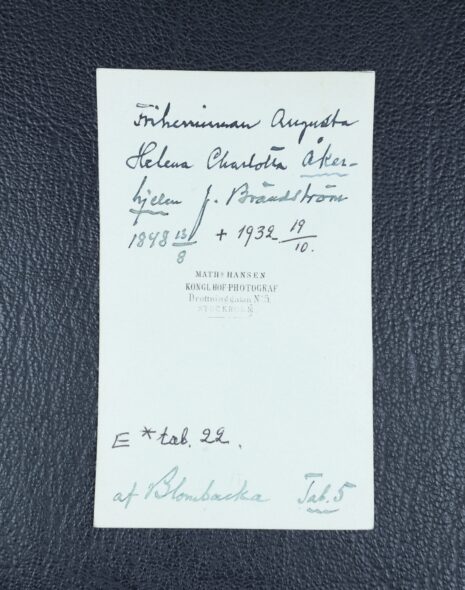 Friherrinnan Augusta
Helena Charlotta Åker-
hjelm f. Brändström
1848 13/8 + 1932 19/10.
MATHS HANSEN
KONGL HOF-PHOTOGRAF
Drottninggatan No 5.
STOCKHOLM
E * tab. 22.
af Blombacka Tab. 5